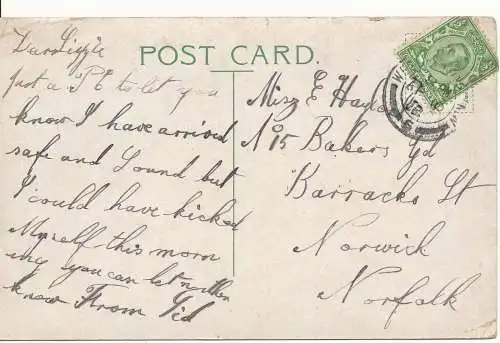 POST CARD.
Dear Lizzie
Just a P C to let you
know I have arrived
safe and Sound but
I could have kicked
Myself this morn
ing you can let mother
know From Sid
Miss E
No 15 Bakers Yd
Barracks St
Norwick
Norfolk